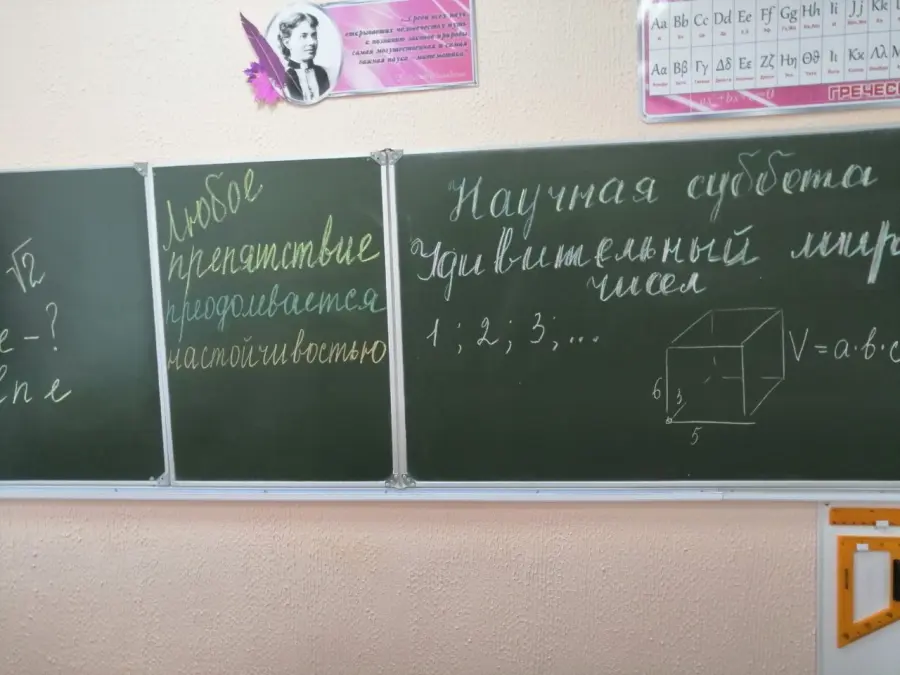 ...Среди всех наук,
открывающих человечеству путь
к познанию законов природы,
самая могущественная и самая
важная наука - математика."
Aa Bb Cc Dd Ee Ff Gg Hh Ii Jj Kk
Αα Ββ Γγ Δδ Εε Ζζ Ηη Θθ Ιι Κκ Λλ
ГРЕЧЕС
√2
е - ?
Любое
препятствие
преодолевается
настойчивостью
Научная суббота
Удивительный мир
чисел
1 ; 2 ; 3 ; ...
6
3
5
V = a·b·c